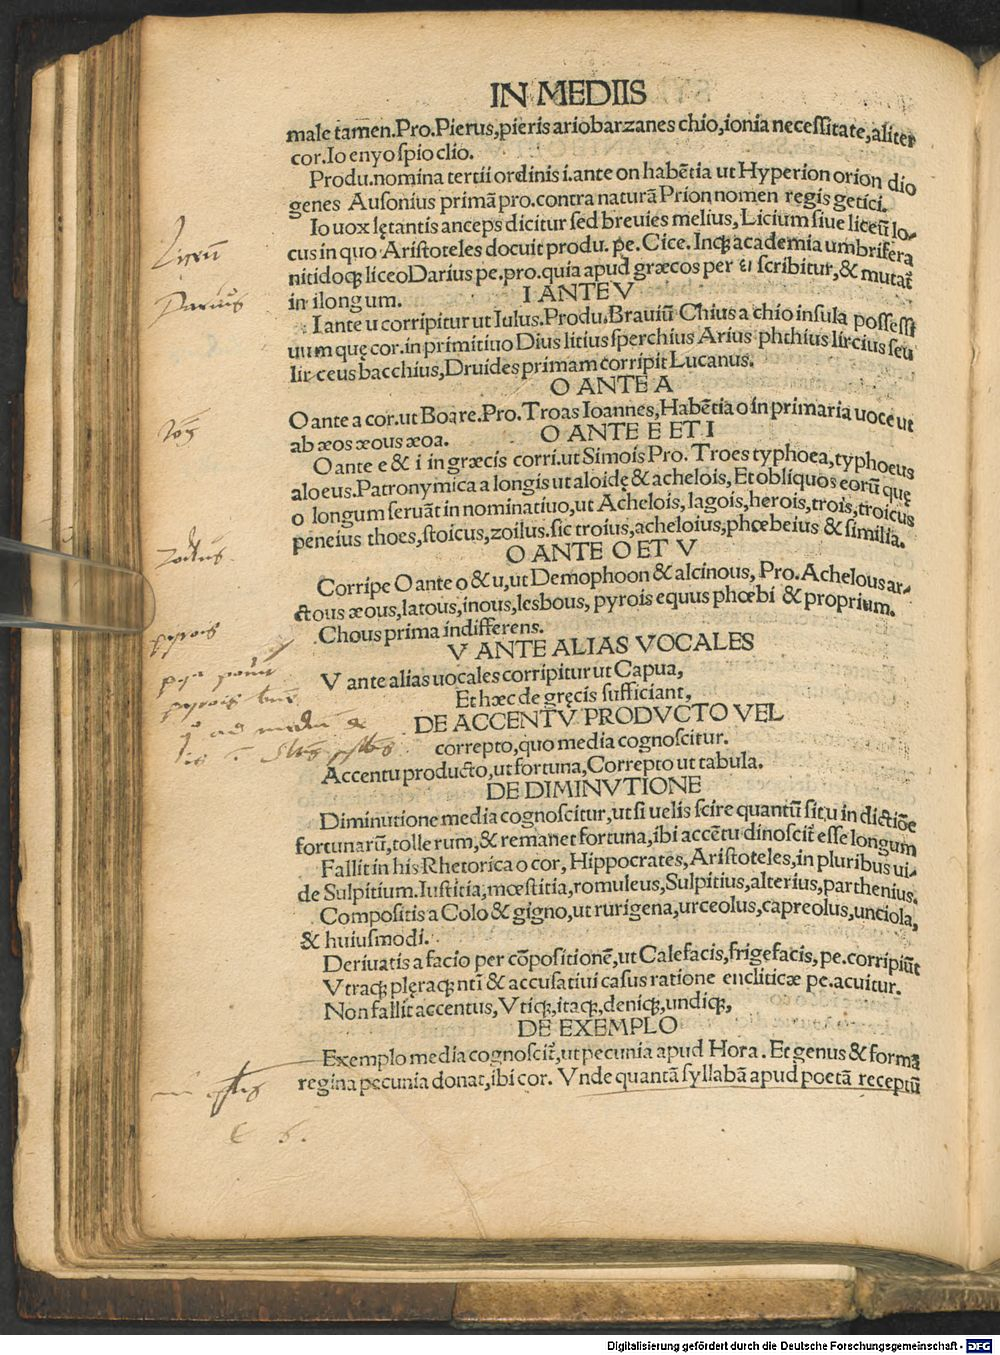 IN MEDIIS
male tamen.Pro.Pierus,pieris ariobarzanes chio,ionia necessitate,aliter
cor.Io enyo spio clio.
Produ.nomina tertii ordinis i.ante on habētia ut Hyperion orion dio
genes Ausonius primā pro.contra naturā Prion nomen regis getici.
Io uox lętantis anceps dicitur sed breuies melius, Licium siue liceū lo-
cus in quo Aristoteles docuit produ. pe. Cice. Inq; academia umbrifera
nitidoq; liceo Darius pe.pro.quia apud græcos per ει scribitur,& mutat̄
in i longum.
I ANTE V
I ante u corripitur ut Iulus.Produ.Brauiū Chius a chio insula possessi
uum quę cor.in primitiuo Dius litius sperchius Arius phthius lircius seu
lirceus bacchius,Druides primam corripit Lucanus.
O ANTE A
O ante a cor.ut Boare.Pro.Troas Ioannes,Habētia o in primaria uoce ut
ab æos æous æoa.
O ANTE E ET I
O ante e & i in græcis corri.ut Simois Pro. Troes typhoea,typhoeus
aloeus.Patronymica a longis ut aloidę & achelois, Et obliquos eorū quę
o longum seruāt in nominatiuo,ut Achelois, lagois,herois,trois,troicus
peneius thoes,stoicus,zoilus.sic troius,acheloius,phœbeius & similia.
O ANTE O ET V
Corripe O ante o & u,ut Demophoon & alcinous, Pro.Achelous ar-
ctous æous,latous,inous,lesbous, pyrois equus phœbi & proprium.
Chous prima indifferens.
V ANTE ALIAS VOCALES
V ante alias uocales corripitur ut Capua,
Et hæc de gręcis sufficiant,
DE ACCENTV PRODVCTO VEL
correpto,quo media cognoscitur.
Accentu producto,ut fortuna,Correpto ut tabula.
DE DIMINVTIONE
Diminutione media cognoscitur,ut si uelis scire quantū sit,u in dictiōe
fortunarū,tolle rum,& remanet fortuna,ibi accētu dinoscit̄ esse longum
Fallit in his Rhetorica o cor, Hippocrates, Aristoteles,in pluribus ui-
de Sulpitium.Iustitia,mœstitia,romuleus,Sulpitius,alterius,parthenius.
Compositis a Colo & gigno,ut rurigena,urceolus,capreolus,unciola,
& huiusmodi.
Deriuatis a facio per cōpositionē,ut Calefacis,frigefacis,pe.corripiūt
Vtraq; plęraq; nti & accusatiui casus ratione encliticæ pe.acuitur.
Non fallit accentus, Vtiq;,itaq;,deniq;,undiq;,
DE EXEMPLO
Exemplo media cognoscit̄,ut pecunia apud Hora. Et genus & formā
regina pecunia donat,ibi cor. Vnde quantā syllabā apud poetā receptū
Liceū
Darius
zoilus
pyrois
Digitalisierung gefördert durch die Deutsche Forschungsgemeinschaft - DFG